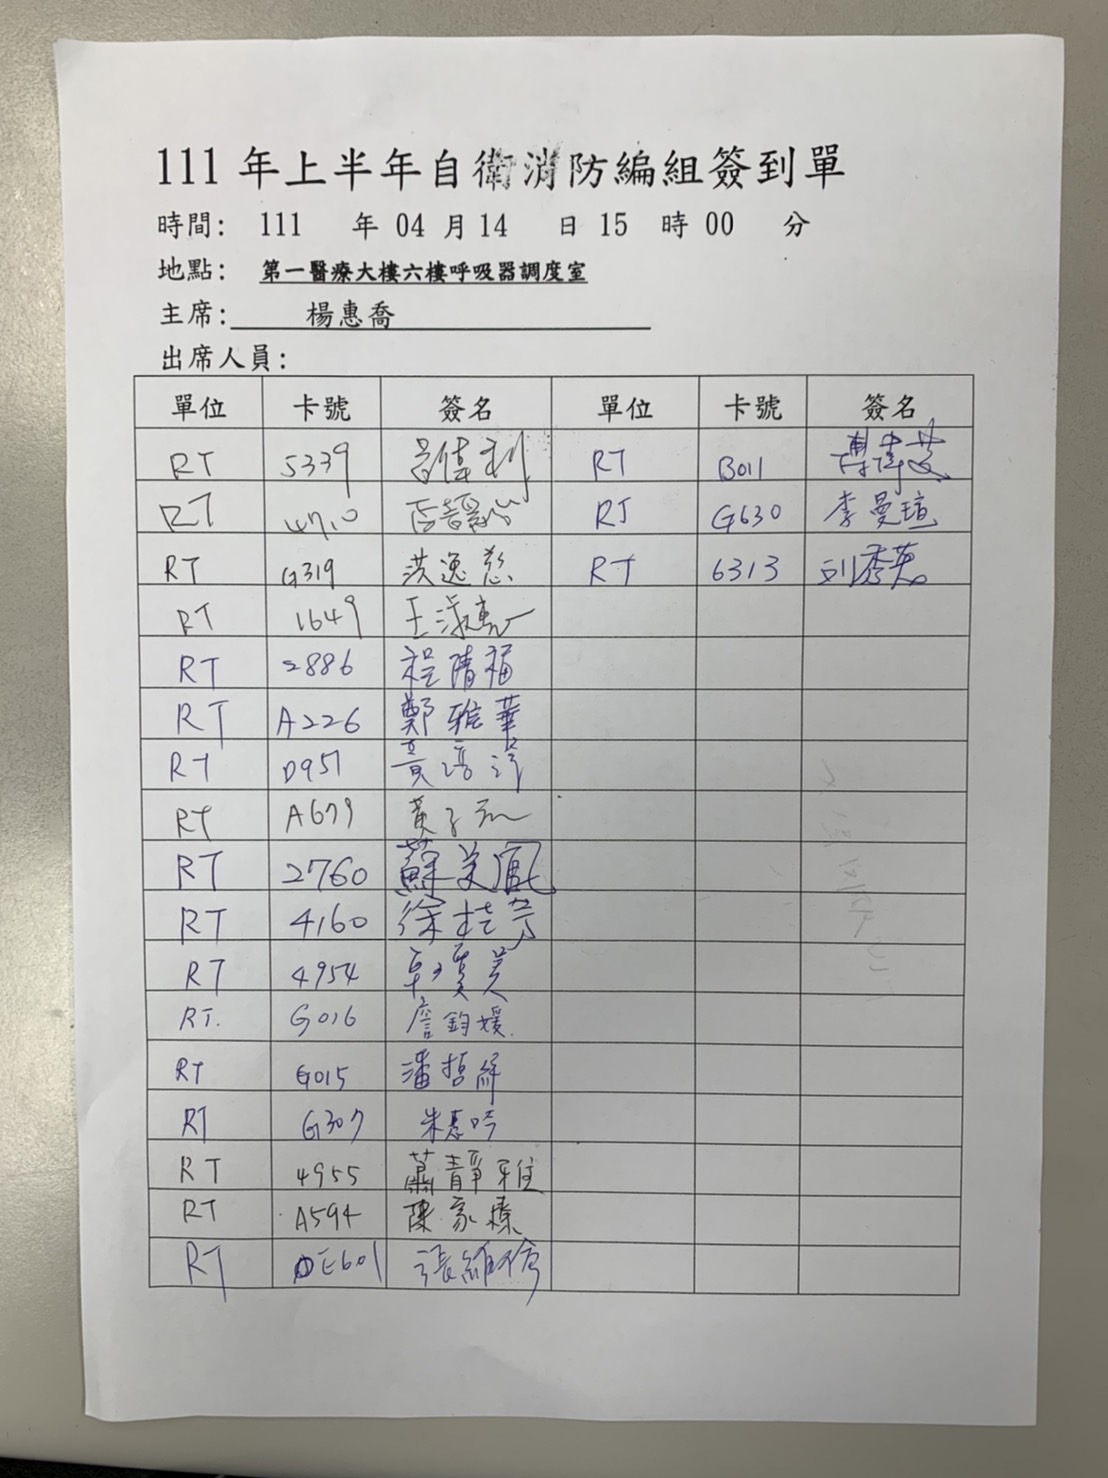 111 年上半年自衛消防編組簽到單
時間: 111 年 04 月 14 日 15 時 00 分
地點: 第一醫療大樓六樓呼吸器調度室
主席: 楊惠喬
出席人員:
單位 卡號 簽名 單位 卡號 簽名
RT 5339 呂偉利 RT B011
RT 4710 RT G630 李曼瑄
RT G319 洪逸慈 RT 6313 劉秀英
RT 1649 王淑惠
RT 2886 程晴福
RT A226 鄭雅華
RT D951 黃培洋
RT A679 黃子
RT 2760 蘇美鳳
RT 4160 徐桂芳
RT 4954 美
RT. G016 詹鈞媛.
RT G015 潘哲緯
RT G307 朱惠吟
RT 4955 蕭靜雅
RT A594 陳家榛
RT E601 張維倫